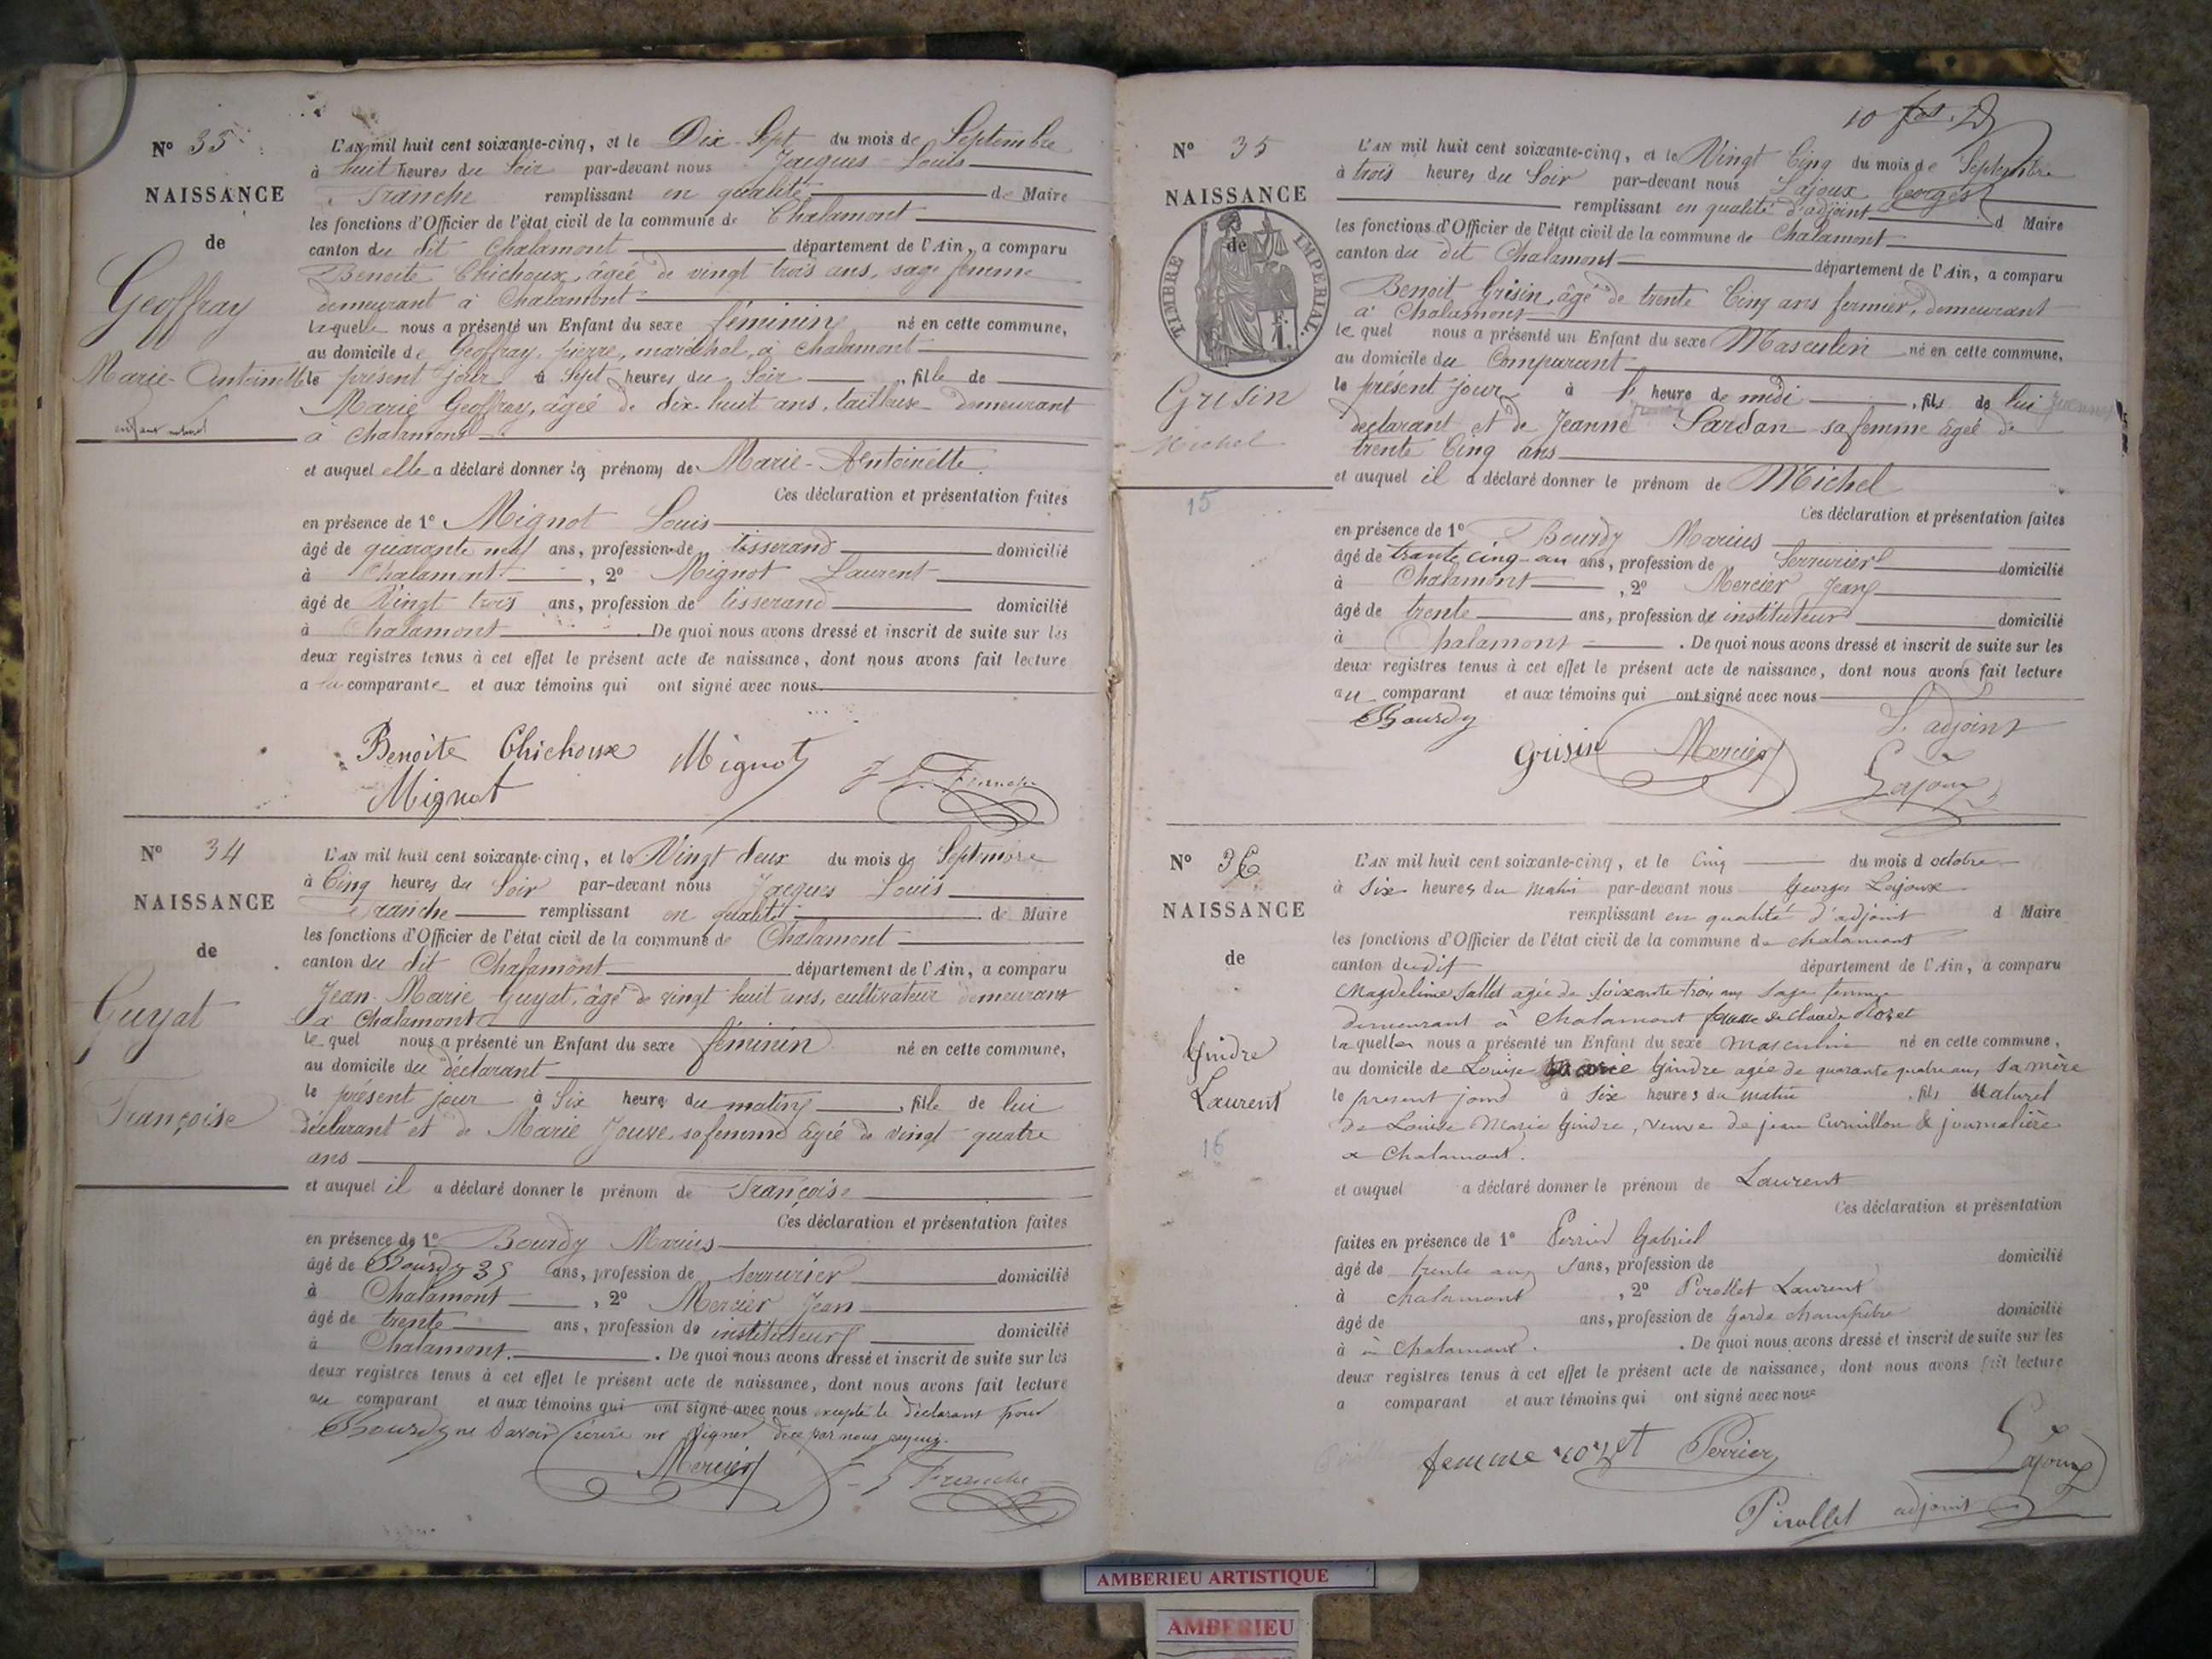 Nº 35
NAISSANCE
de
Geoffray
Marie-Antoinette
enfant naturel
L'AN mil huit cent soixante-cinq, et le Dix-Sept du mois de Septembre
à huit heures du Soir par-devant nous Jacques Louis
Franche remplissant en qualité de Maire
les fonctions d'Officier de l'état civil de la commune de Chalamont
canton du dit Chalamont département de l'Ain, a comparu
Benoite Chichoux, âgée de vingt trois ans, sage femme
demeurant à Chalamont
laquelle nous a présenté un Enfant du sexe féminin né en cette commune,
au domicile de Geoffray pierre, maréchal, à Chalamont
le présent jour à Sept heures du Soir, fille de
Marie Geoffray, âgée de dix-huit ans, tailleuse demeurant
à Chalamont
et auquel elle a déclaré donner les prénoms de Marie-Antoinette.
Ces déclaration et présentation faites
en présence de 1º Mignot Louis
âgé de quarante neuf ans, profession de tisserand domicilié
à Chalamont, 2º Mignot Laurent
âgé de Vingt trois ans, profession de tisserand domicilié
à Chalamont. De quoi nous avons dressé et inscrit de suite sur les
deux registres tenus à cet effet le présent acte de naissance, dont nous avons fait lecture
a la comparante et aux témoins qui ont signé avec nous.
Benoite Chichoux Mignot J L. Franche
Mignot
Nº 34
NAISSANCE
de
Guyat
Françoise
L'AN mil huit cent soixante-cinq, et le Vingt deux du mois de Septembre
à Cinq heures du Soir par-devant nous Jacques Louis
Franche remplissant en qualité de Maire
les fonctions d'Officier de l'état civil de la commune de Chalamont
canton du dit Chalamont département de l'Ain, a comparu
Jean-Marie Guyat, âgé de vingt huit ans, cultivateur demeurant
à Chalamont
lequel nous a présenté un Enfant du sexe féminin né en cette commune,
au domicile du déclarant
le présent jour à Six heures du matin, fille de lui
déclarant et de Marie Jouve, sa femme âgée de vingt-quatre
ans
et auquel il a déclaré donner le prénom de Françoise
Ces déclaration et présentation faites
en présence de 1º Bourdy Marius
âgé de Bourdy 35 ans, profession de Serrurier domicilié
à Chalamont, 2º Mercier Jean
âgé de trente ans, profession de instituteur domicilié
à Chalamont. De quoi nous avons dressé et inscrit de suite sur les
deux registres tenus à cet effet le présent acte de naissance, dont nous avons fait lecture
au comparant et aux témoins qui ont signé avec nous excepté le déclarant pour
Bourdy ne savoir écrire ni signer de ce par nous requis.
Mercier J L Franche
10
Nº 35
NAISSANCE
de
TIMBRE IMPERIAL
1 F.
Grisin
Michel
15
L'AN mil huit cent soixante-cinq, et le Vingt Cinq du mois de Septembre
à trois heures du Soir par-devant nous Lajoux Georges
remplissant en qualité d'adjoint d Maire
les fonctions d'Officier de l'état civil de la commune de Chalamont
canton du dit Chalamont département de l'Ain, a comparu
Benoit Grisin, âgé de trente Cinq ans fermier, demeurant
à Chalamont
le quel nous a présenté un Enfant du sexe Masculin né en cette commune,
au domicile du Comparant
le présent jour à heure de midi, fils de lui
déclarant et de Jeanne Sardan sa femme âgée de
trente Cinq ans
et auquel il a déclaré donner le prénom de Michel
Ces déclaration et présentation faites
en présence de 1º Bourdy Marius
âgé de trante cinq an ans, profession de Serrurier domicilié
à Chalamont, 2º Mercier Jean
âgé de trente ans, profession de instituteur domicilié
à Chalamont. De quoi nous avons dressé et inscrit de suite sur les
deux registres tenus à cet effet le présent acte de naissance, dont nous avons fait lecture
au comparant et aux témoins qui ont signé avec nous
Bourdy L'adjoint
Grisin Mercier Lajoux
Nº 36
NAISSANCE
de
Gindre
Laurent
16
L'AN mil huit cent soixante-cinq, et le Cinq du mois d octobre
à Six heures du matin par-devant nous Georges Lajoux
remplissant en qualité d'adjoint d Maire
les fonctions d'Officier de l'état civil de la commune de chalamont
canton dudit département de l'Ain, a comparu
Magdeline Sallet agée de soixante trois ans sage femme
demeurant à Chalamont femme de Claude Rozet
laquelle nous a présenté un Enfant du sexe masculin né en cette commune,
au domicile de Louise Marie Gindre agée de quarante quatre ans, sa mère
le present jour à Six heures du matin, fils Naturel
de Louise Marie Gindre, veuve de jean Curnillon & journalière
a Chalamont.
et auquel a déclaré donner le prénom de Laurent
Ces déclaration et présentation
faites en présence de 1º Perrier Gabriel
âgé de trente ans, profession de domicilié
à chalamont, 2º Pirollet Laurent
âgé de ans, profession de garde champêtre domicilié
à à Chalamont. De quoi nous avons dressé et inscrit de suite sur les
deux registres tenus à cet effet le présent acte de naissance, dont nous avons fait lecture
a comparant et aux témoins qui ont signé avec nous
femme rozet Perrier Lajoux
Pirollet adjoint
AMBERIEU ARTISTIQUE
AMBERIEU